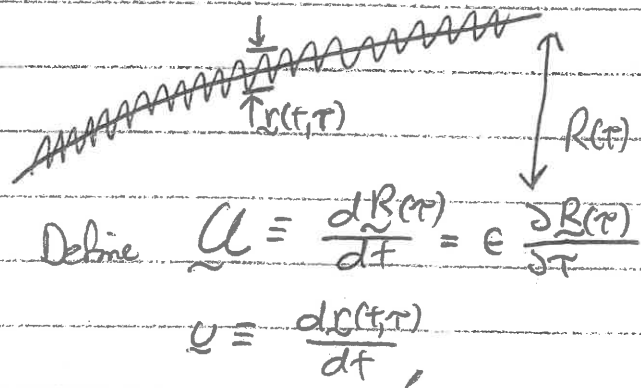 r(t,τ)
R(τ)
Define U ≡ dR(τ)/dt = ϵ ∂R(τ)/∂τ
υ ≡ dr(t,τ)/dt,